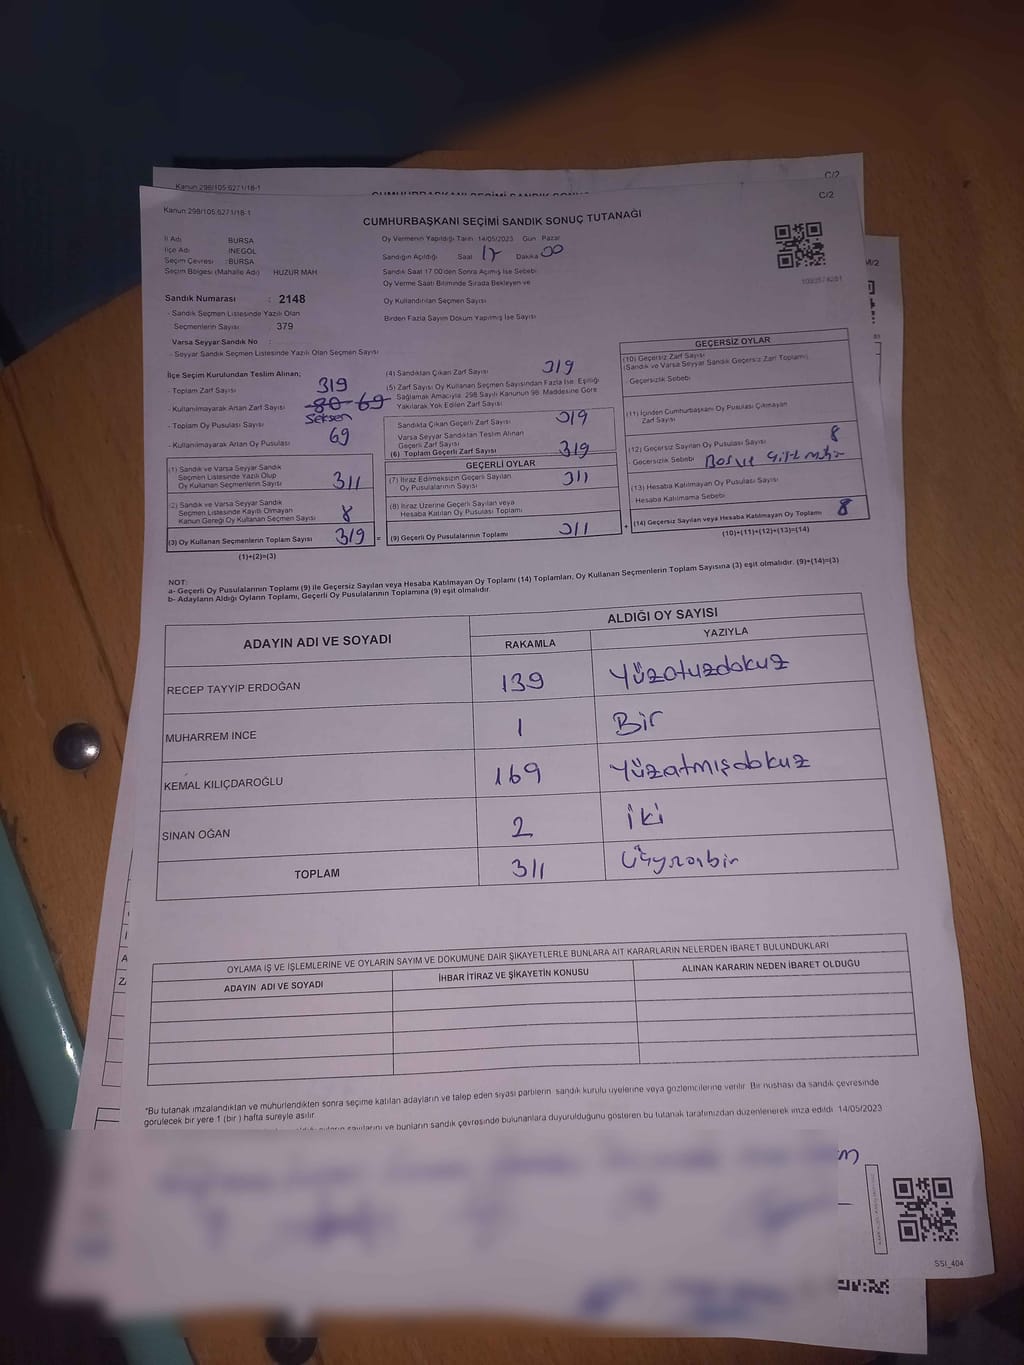 Kanun 298/105.6271/18-1
C/2
Kanun 298/105.6271/18-1
C/2
CUMHURBAŞKANI SEÇİMİ SANDIK SONUÇ TUTANAĞI
İl Adı : BURSA
İlçe Adı : İNEGÖL
Seçim Çevresi : BURSA
Seçim Bölgesi (Mahalle Adı) HUZUR MAH
Oy Vermenin Yapıldığı Tarih 14/05/2023 Gün Pazar
Sandığın Açıldığı Saat 17 Dakika 00
Sandık Saat 17.00'den Sonra Açılmış İse Sebebi
Oy Verme Saati Bitiminde Sırada Bekleyen ve
Oy Kullandırılan Seçmen Sayısı
Birden Fazla Sayım Döküm Yapılmış İse Sayısı
Sandık Numarası : 2148
- Sandık Seçmen Listesinde Yazılı Olan
Seçmenlerin Sayısı : 379
Varsa Seyyar Sandık No :
- Seyyar Sandık Seçmen Listesinde Yazılı Olan Seçmen Sayısı
İlçe Seçim Kurulundan Teslim Alınan;
- Toplam Zarf Sayısı 319
- Kullanılmayarak Artan Zarf Sayısı 80 69
- Toplam Oy Pusulası Sayısı Seksen
- Kullanılmayarak Artan Oy Pusulası 69
(1) Sandık ve Varsa Seyyar Sandık
Seçmen Listesinde Yazılı Olup
Oy Kullanan Seçmenlerin Sayısı 311
(2) Sandık ve Varsa Seyyar Sandık
Seçmen Listesinde Kayıtlı Olmayan
Kanun Gereği Oy Kullanan Seçmen Sayısı 8
(3) Oy Kullanan Seçmenlerin Toplam Sayısı 319 =
(1)+(2)=(3)
(4) Sandıktan Çıkan Zarf Sayısı 319
(5) Zarf Sayısı Oy Kullanan Seçmen Sayısından Fazla İse, Eşitliği
Sağlamak Amacıyla, 298 Sayılı Kanunun 98. Maddesine Göre
Yakılarak Yok Edilen Zarf Sayısı
Sandıkta Çıkan Geçerli Zarf Sayısı 319
Varsa Seyyar Sandıktan Teslim Alınan
Geçerli Zarf Sayısı
(6) Toplam Geçerli Zarf Sayısı 319
GEÇERLİ OYLAR
(7) İtiraz Edilmeksizin Geçerli Sayılan
Oy Pusulalarının Sayısı 311
(8) İtiraz Üzerine Geçerli Sayılan veya
Hesaba Katılan Oy Pusulası Toplamı
(9) Geçerli Oy Pusulalarının Toplamı 311 +
GEÇERSİZ OYLAR
(10) Geçersiz Zarf Sayısı
(Sandık ve Varsa Seyyar Sandık Geçersiz Zarf Toplamı)
Geçersizlik Sebebi
(11) İçinden Cumhurbaşkanı Oy Pusulası Çıkmayan
Zarf Sayısı
(12) Geçersiz Sayılan Oy Pusulası Sayısı 8
Geçersizlik Sebebi Boş ve
(13) Hesaba Katılmayan Oy Pusulası Sayısı
Hesaba Katılmama Sebebi
(14) Geçersiz Sayılan veya Hesaba Katılmayan Oy Toplamı 8
(10)+(11)+(12)+(13)=(14)
NOT:
a- Geçerli Oy Pusulalarının Toplamı (9) ile Geçersiz Sayılan veya Hesaba Katılmayan Oy Toplamı (14) Toplamları, Oy Kullanan Seçmenlerin Toplam Sayısına (3) eşit olmalıdır. (9)+(14)=(3)
b- Adayların Aldığı Oyların Toplamı, Geçerli Oy Pusulalarının Toplamına (9) eşit olmalıdır.
ADAYIN ADI VE SOYADI
ALDIĞI OY SAYISI
RAKAMLA YAZIYLA
RECEP TAYYİP ERDOĞAN 139 Yüzotuzdokuz
MUHARREM İNCE 1 Bir
KEMAL KILIÇDAROĞLU 169 Yüzatmışdokuz
SİNAN OĞAN 2 İki
TOPLAM 311
OYLAMA İŞ VE İŞLEMLERİNE VE OYLARIN SAYIM VE DÖKÜMÜNE DAİR ŞİKAYETLERLE BUNLARA AİT KARARLARIN NELERDEN İBARET BULUNDUKLARI
ADAYIN ADI VE SOYADI
İHBAR İTİRAZ VE ŞİKAYETİN KONUSU
ALINAN KARARIN NEDEN İBARET OLDUĞU
*Bu tutanak imzalandıktan ve mühürlendikten sonra seçime katılan adayların ve talep eden siyasi partilerin sandık kurulu üyelerine veya gözlemcilerine verilir. Bir nüshası da sandık çevresinde
görülecek bir yere 1 (bir) hafta süreyle asılır.
sayılarını ve bunların sandık çevresinde bulunanlara duyurulduğunu gösteren bu tutanak tarafımızdan düzenlenerek imza edildi. 14/05/2023
SSİ_404